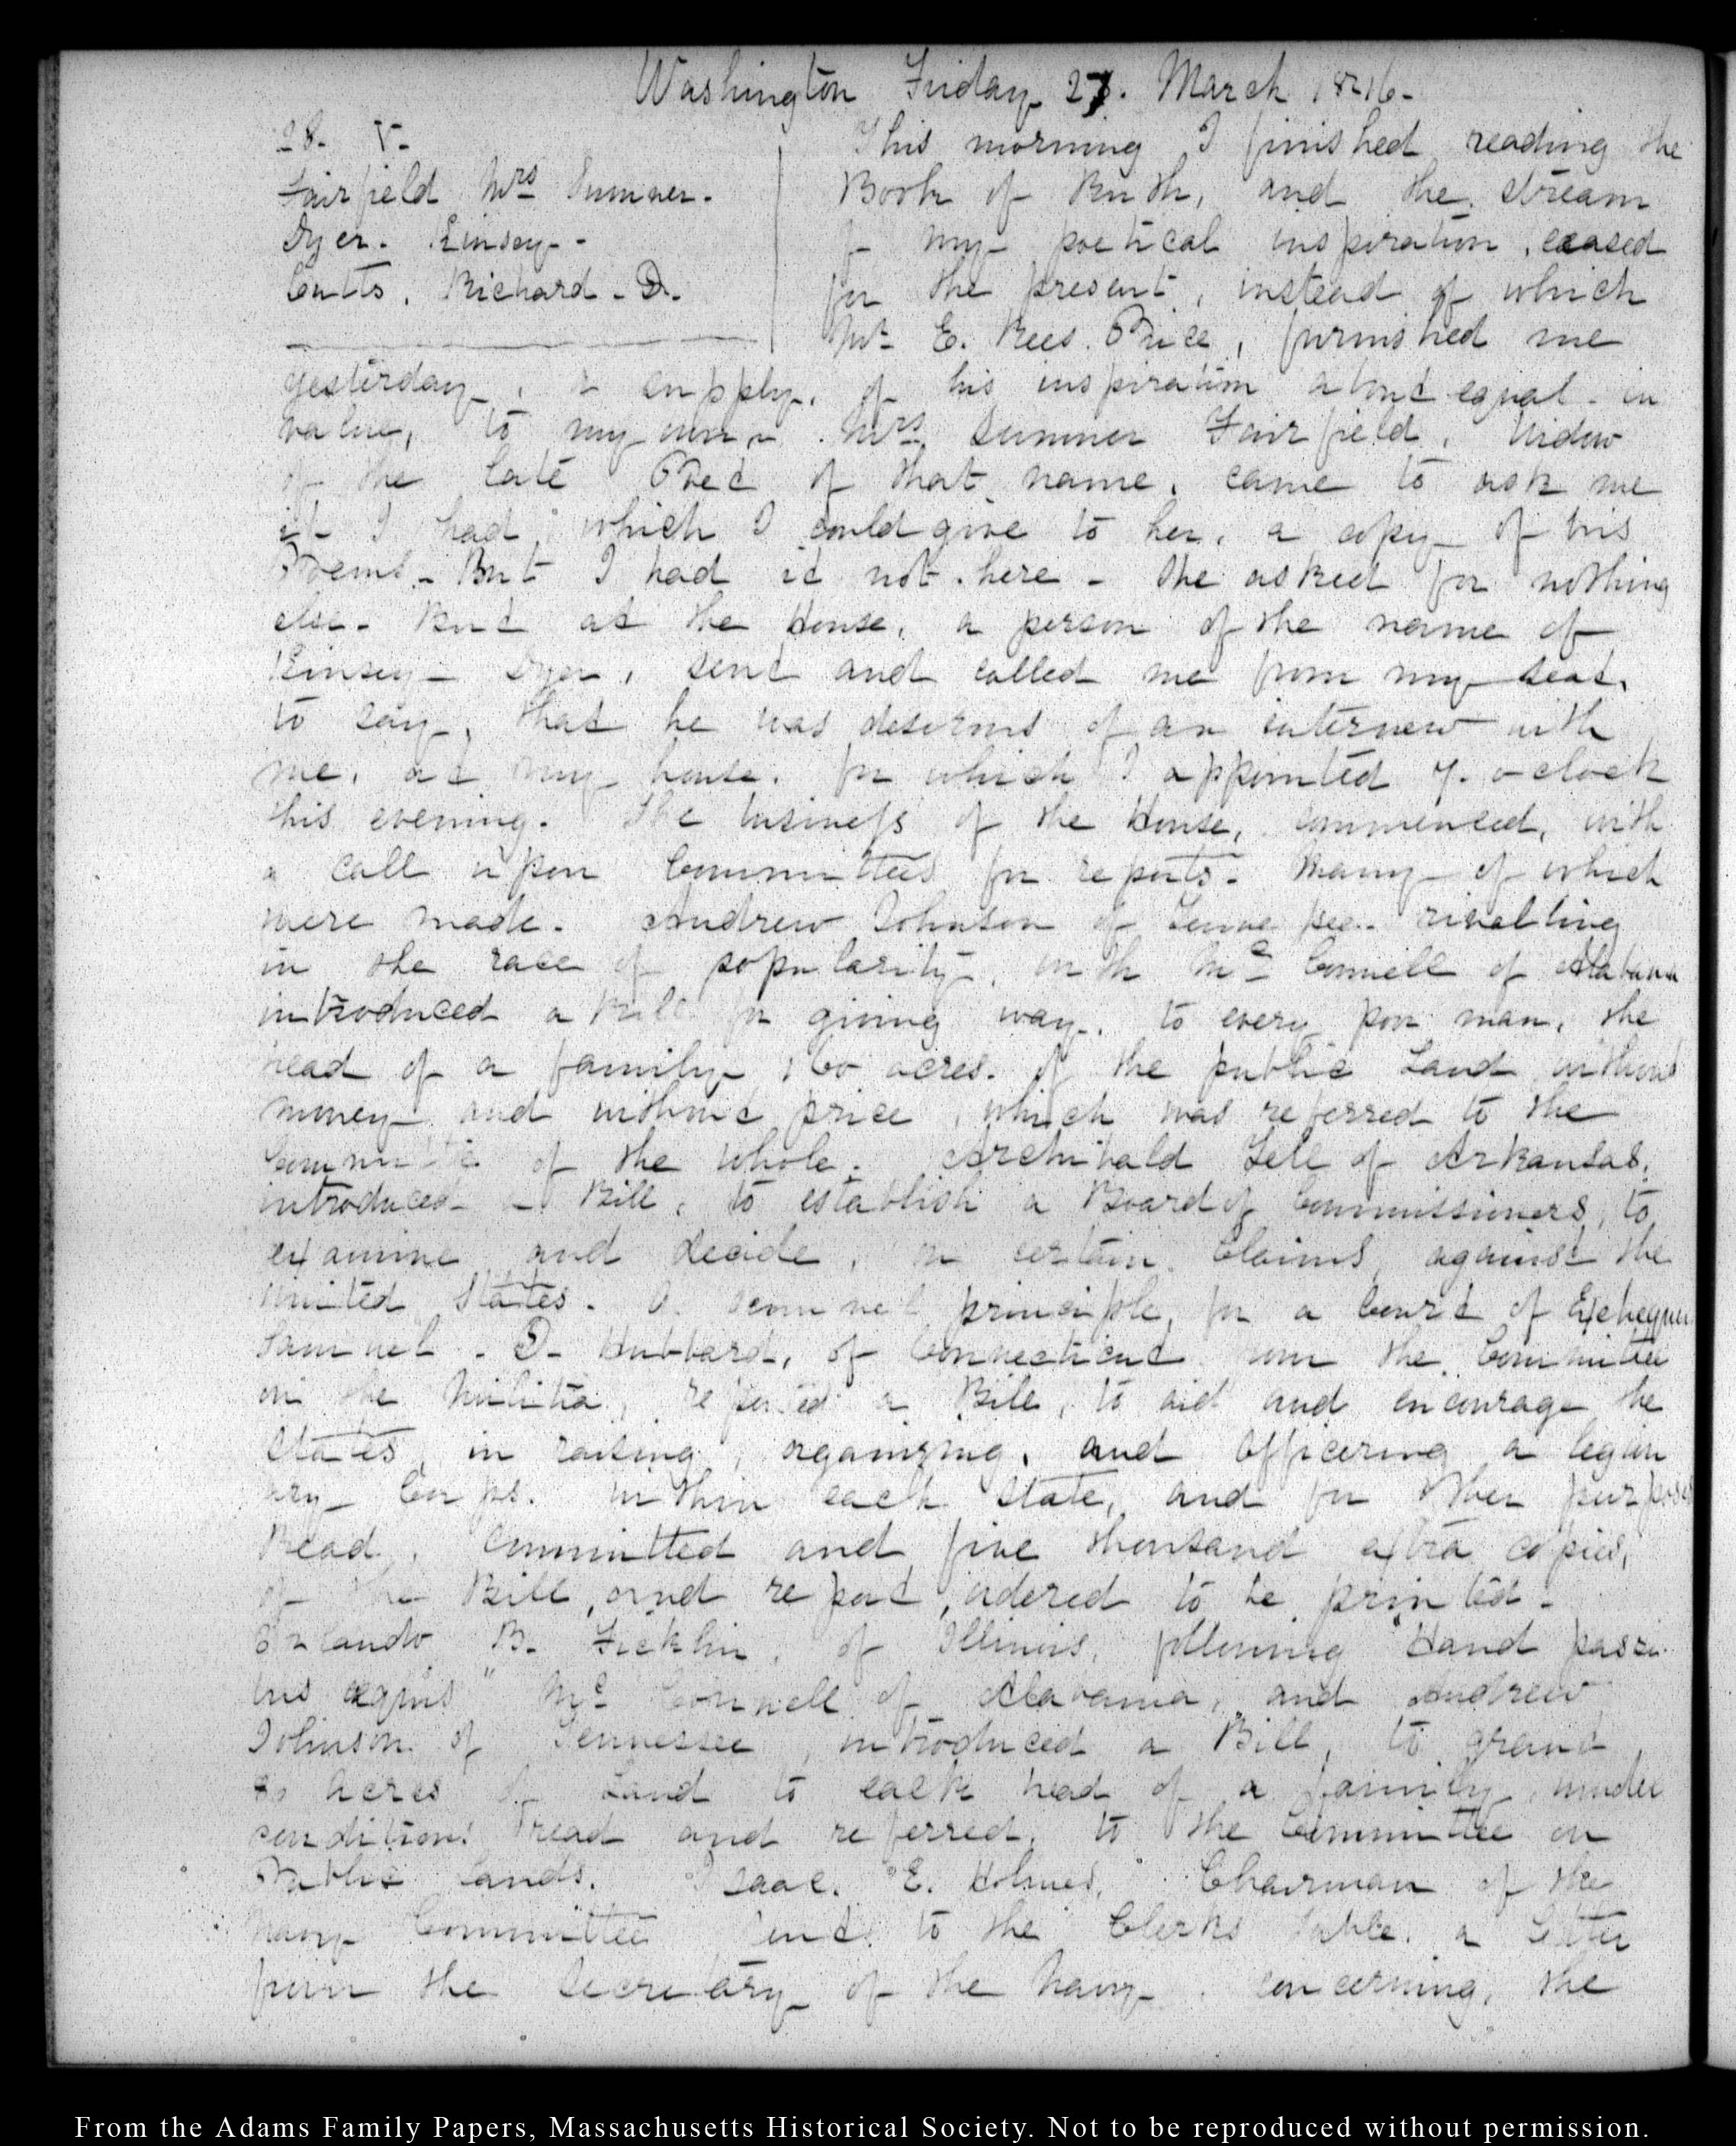 Washington Friday 27. March 1846-
28. V-
Fairfield Mrs Sumner.
Dyer- Kinsey-
Cutts. Richard. D.
This morning I finished reading the
Book of Ruth, and the stream
of my poetical inspiration, ceased
for the present, instead of which
Mr E. Rees. Price, furnished me
yesterday, a supply, of his inspiration about equal in
value, to my own. Mrs. Sumner Fairfield, Widow
of the late Poet of that name, came to ask me
if I had, which I could give to her, a copy of his
Poems- But I had it not here- She asked for nothing
else- But at the House, a person of the name of
Kinsey Dyer, sent and called me from my seat,
to say, that he was desirous of an interview with
me, at my house, for which I appointed 7. o-clock
this evening. The business of the House, commenced, with
a call upon Committees for reports- Many of which
were made- Andrew Johnson of Tennessee- rivalling
in the race of popularity, with Mc Connell of Alabama
introduced a Bill for giving way, to every poor man, the
head of a family 160 acres- of the public Land without
money and without price, which was referred to the
Committee of the whole. Archibald Yell of Arkansas,
introduced a Bill, to establish a Board of Commissioners, to
examine and decide, on certain Claims, against the
United States. principle, for a Court of Exchequer
Samuel. D- Hubbard, of Connecticut from the Committee
on the Militia, reported a Bill, to aid and encourage the
States, in raising, organizing, and officering a legion
ary Corps. within each State, and for other purposes
Read, Committed and five thousand extra copies,
of the Bill, and report, ordered to be printed-
Orlando B. Ficklin, of Illinois, following "Haud passi-
bus aequis" Mc Connell of Alabama, and Andrew
Johnson of Tennessee, introduced a Bill, to grant
80 acres of Land to each head of a family, under
conditions read and referred, to the Committee on
Public Lands. Isaac. E. Holmes, Chairman of the
Navy Committee sent to the Clerks table, a Letter
from the Secretary of the Navy, concerning, the
From the Adams Family Papers, Massachusetts Historical Society. Not to be reproduced without permission.